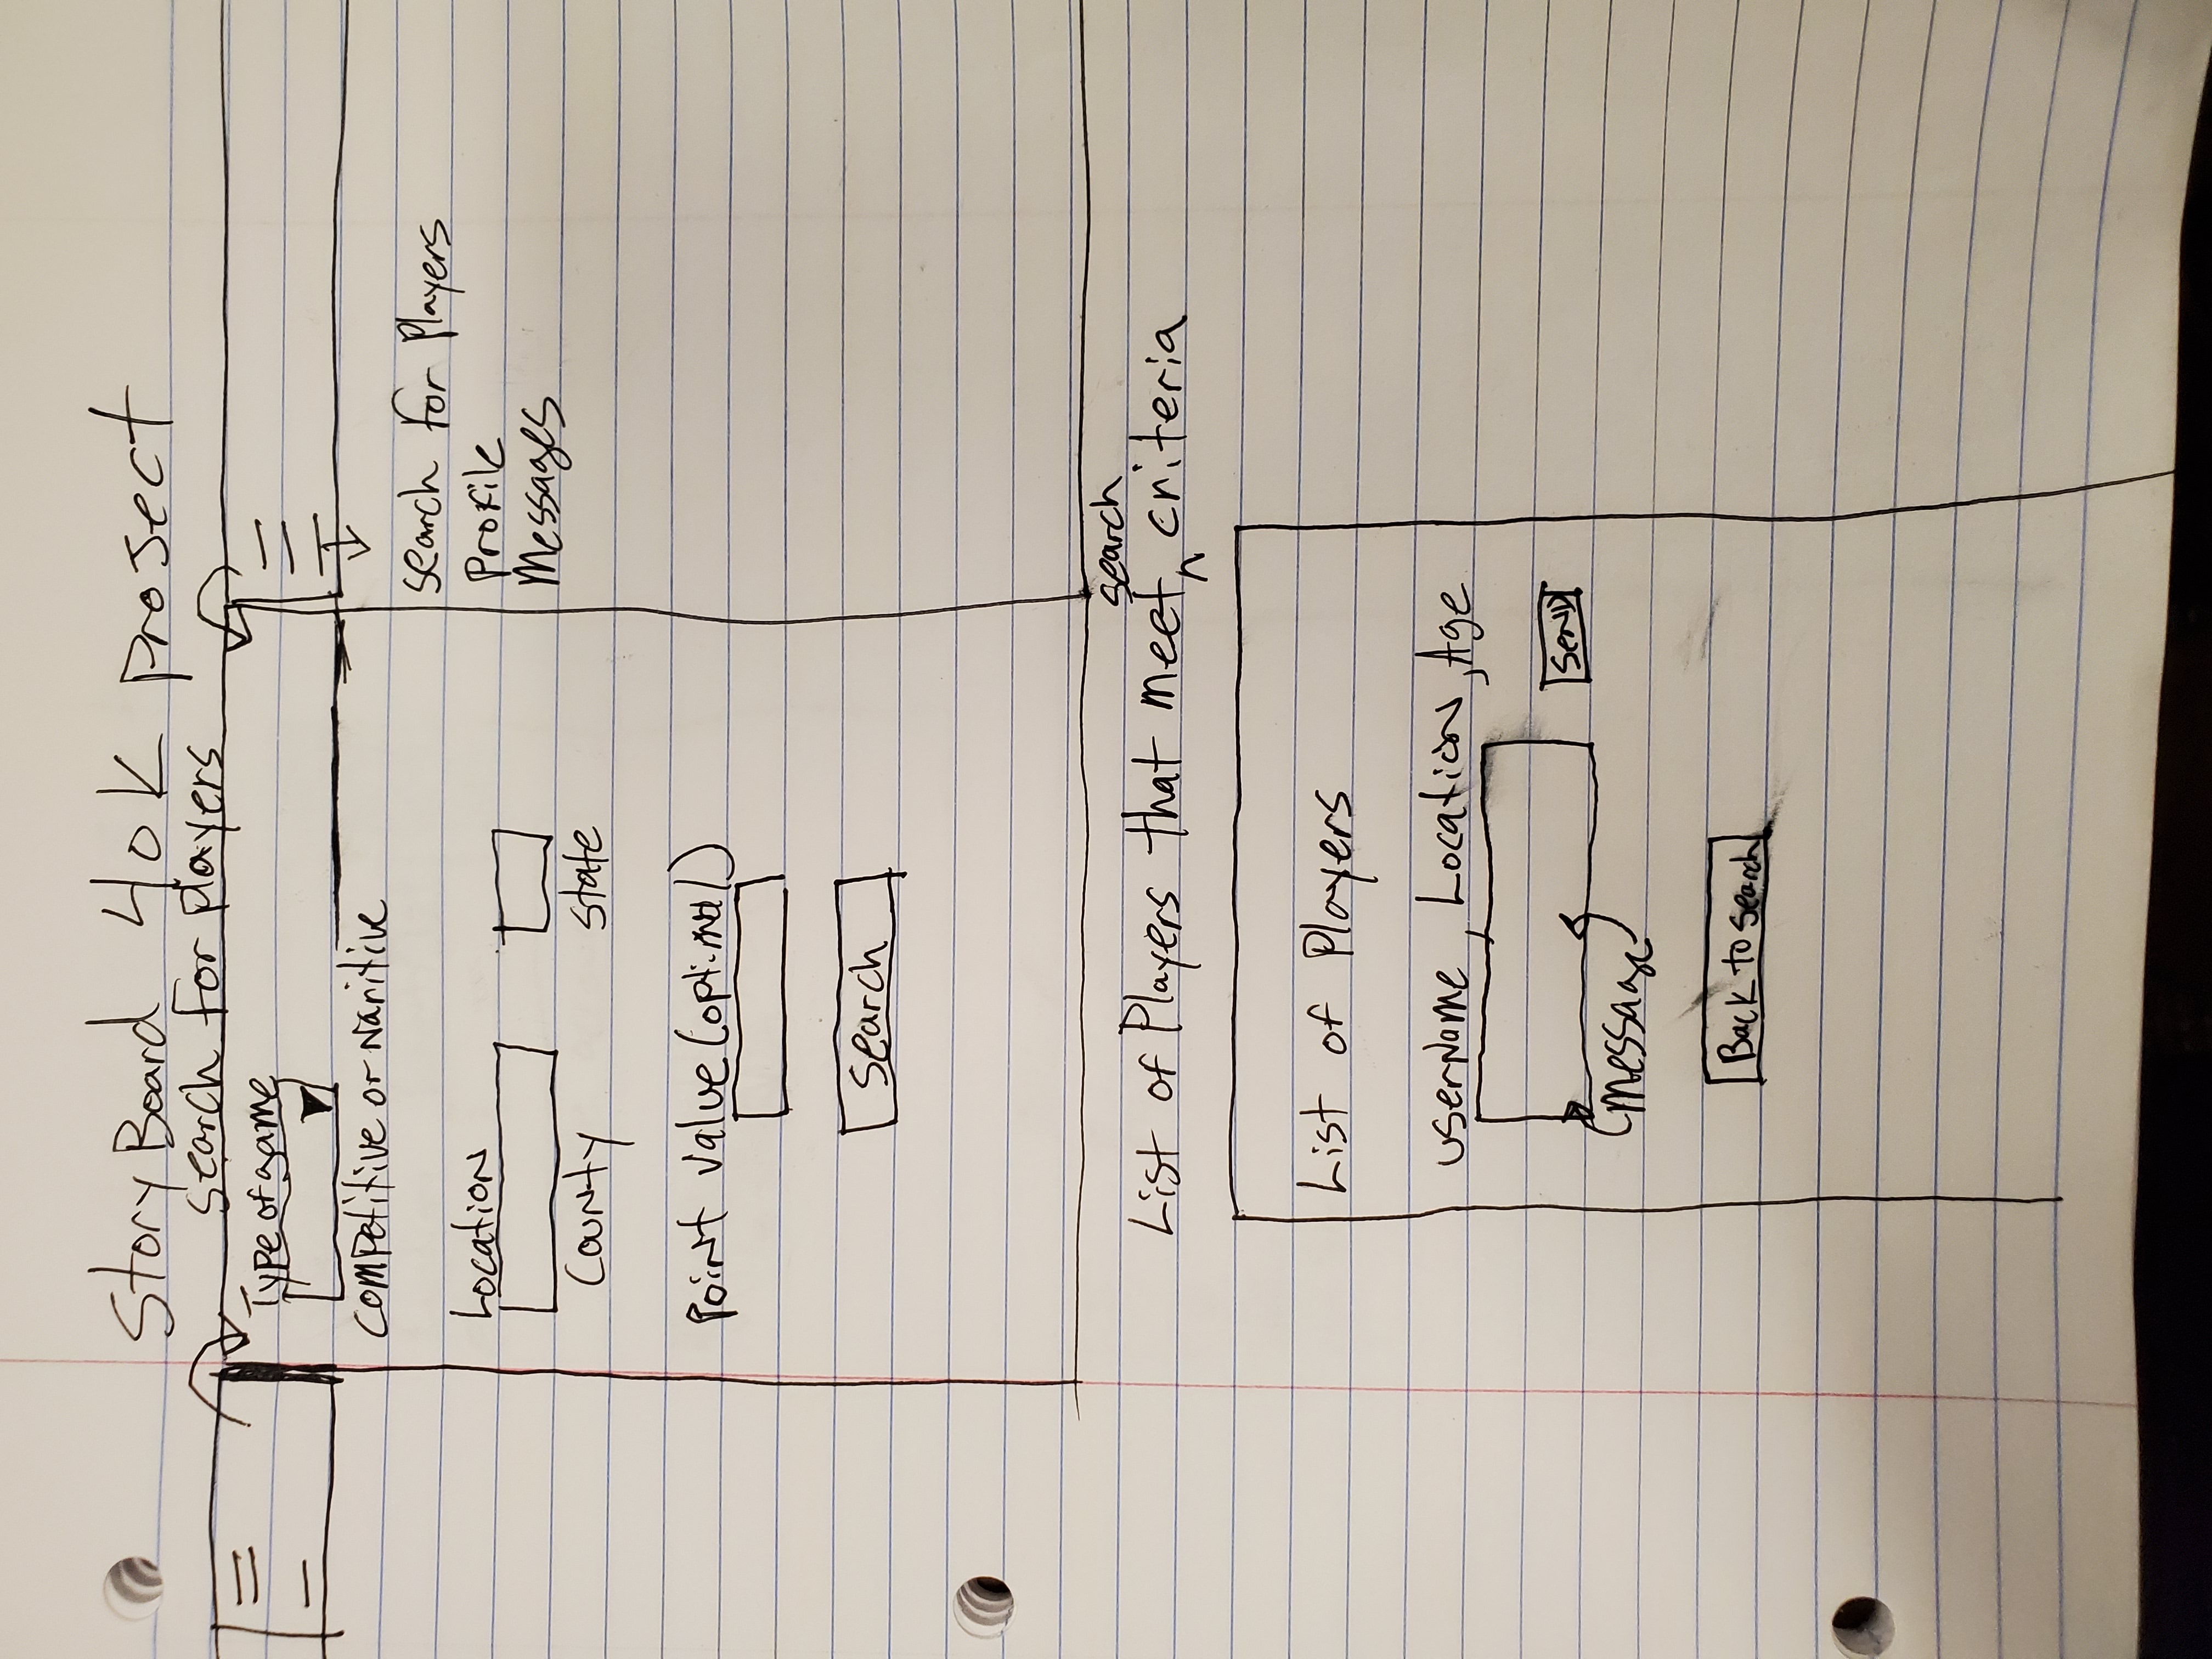 Story Board 40K project
search for players
Type of game
competitive or Naritive
Location
County
state
Point value (optional)
search
search for Players
Profile
Messages
search
List of Players that meet criteria
List of Players
userName, Location, Age
send
(message)
Back to search